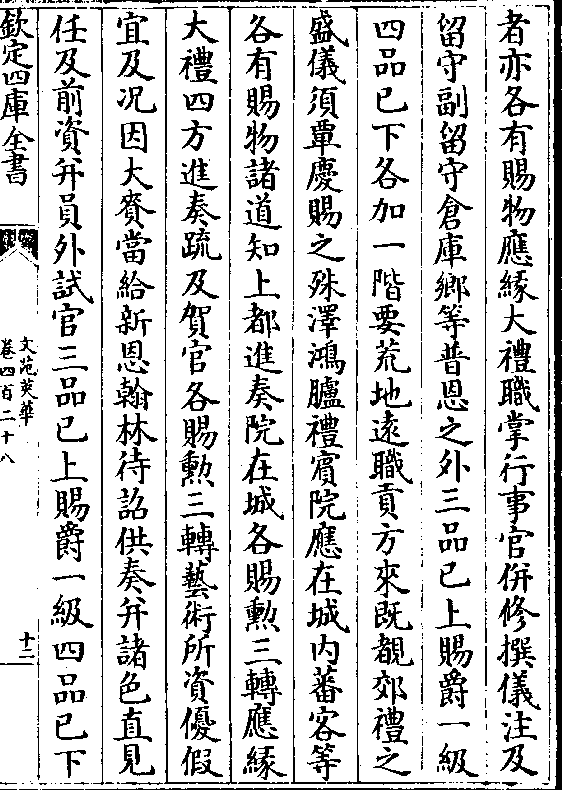 者亦各有賜物應緣大禮職掌行事官併修撰儀注及
留守副留守倉庫鄉等普恩之外三品已上賜爵一級
四品已下各加一階要荒地逺職貢方來既覩郊禮之
盛儀須覃慶賜之殊澤鴻臚禮賓院應在城内蕃客等
各有賜物諸道知上都進奏院在城各賜勲三轉應緣
大禮四方進奏疏及賀官各賜勲三轉藝術所資優假
宜及况因大賚當給新恩翰林待詔供奏弁諸色直見
任及前資弁員外試官三品已上賜爵一級四品已下
欽定四庫全書
文苑英華
卷四百二十八
十二